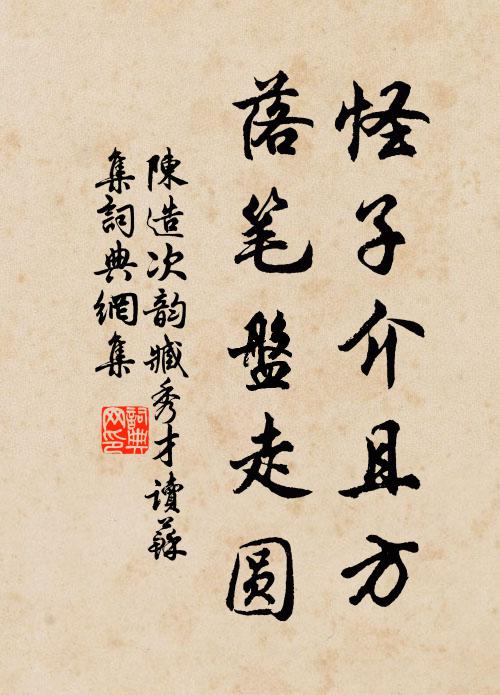 怪子介且方
落笔盤走圆
陳造次韵臧秀才讀蘇
集詞典網集
詞典网印